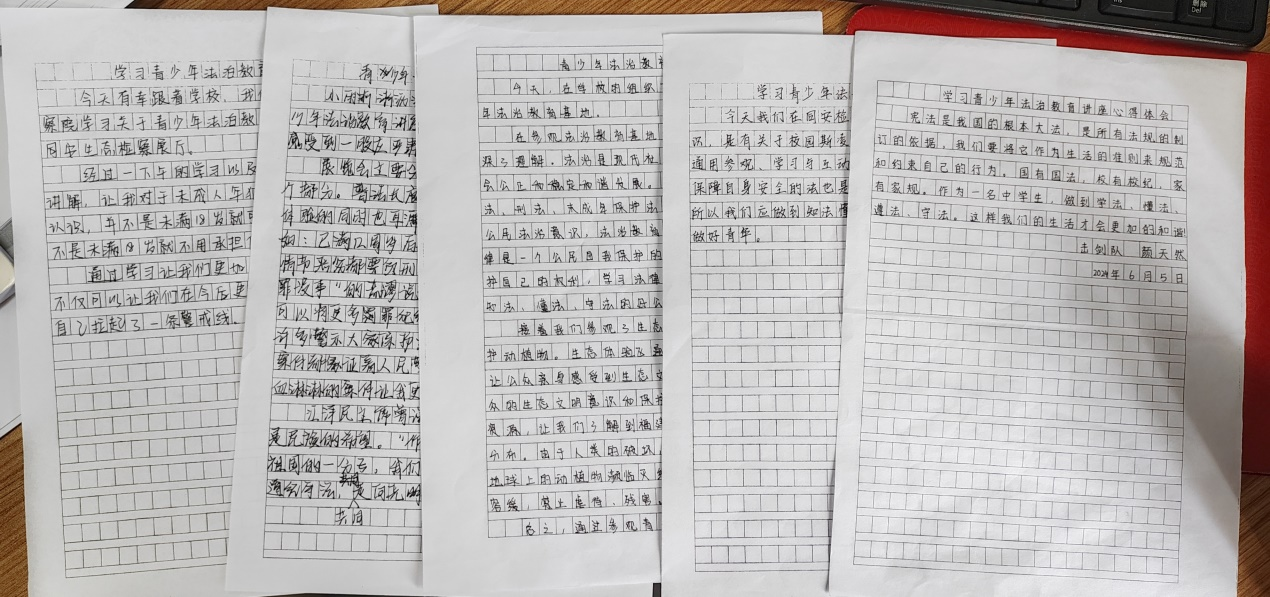 学习青少年法治教育
今天有幸跟着学校，我们
察院学习关于青少年法治教
同学生态检察展厅。
经过一下午的学习以及
讲解，让我对于未成人年犯
认识，并不是未满18岁就可
不是未满18岁就不用承担任
通过学习让我们更加
不仅可以让我们在今后更
自己拉起了一条警戒线。
青少年
小雨淅淅沥
少年法治教育讲座
感受到一股庄严肃
展馆会主要分
个部分。普法长廊
体验的同时也再
如：已满12周岁应
情节恶劣都要
罪没事”的荒谬说
可以将更多
许多警示大家保护
案件都像证嘉人民
血淋淋的案件让我更
江泽民主席曾说
是民族的希望。”作
祖国的一分子，我们
遵纪守法，
共同
青少年法治教育
今天，在学校的组织
年法治教育基地。
在参观法治教育基地
深了理解。法治是现代社
会公正和稳定和谐发展。
法、刑法、未成年保护法
公民法治意识，法治教
像是一个公民自我保护的
护自己的权利，学习法律
知法、懂法、守法的好公
接着我们参观了生态
护动植物。生态体验飞
让公众亲身感受到生态文
众的生态文明意识和保护
资源，让我们了解到福建
分布。由于人类的破坏
地球上的动植物濒临灭绝
容缓，禁止虐待、残害
总之，通过参观青
学习青少年法
今天我们在同安检
识，是有关于校园期爱
通用参观、学习与互动
保障自身安全的法也是
所以我们应做到知法懂
做好青年。
学习青少年法治教育讲座心得体会
宪法是我国的根本大法，是所有法规的制
订的依据，我们要将它作为生活的准则来规范
和约束自己的行为。国有国法，校有校纪，家
有家规。作为一名中学生，做到学法、懂法、
遵法、守法。这样我们的生活才会更加的和谐
击剑队 颜天然
2024年6月5日
删除
Del